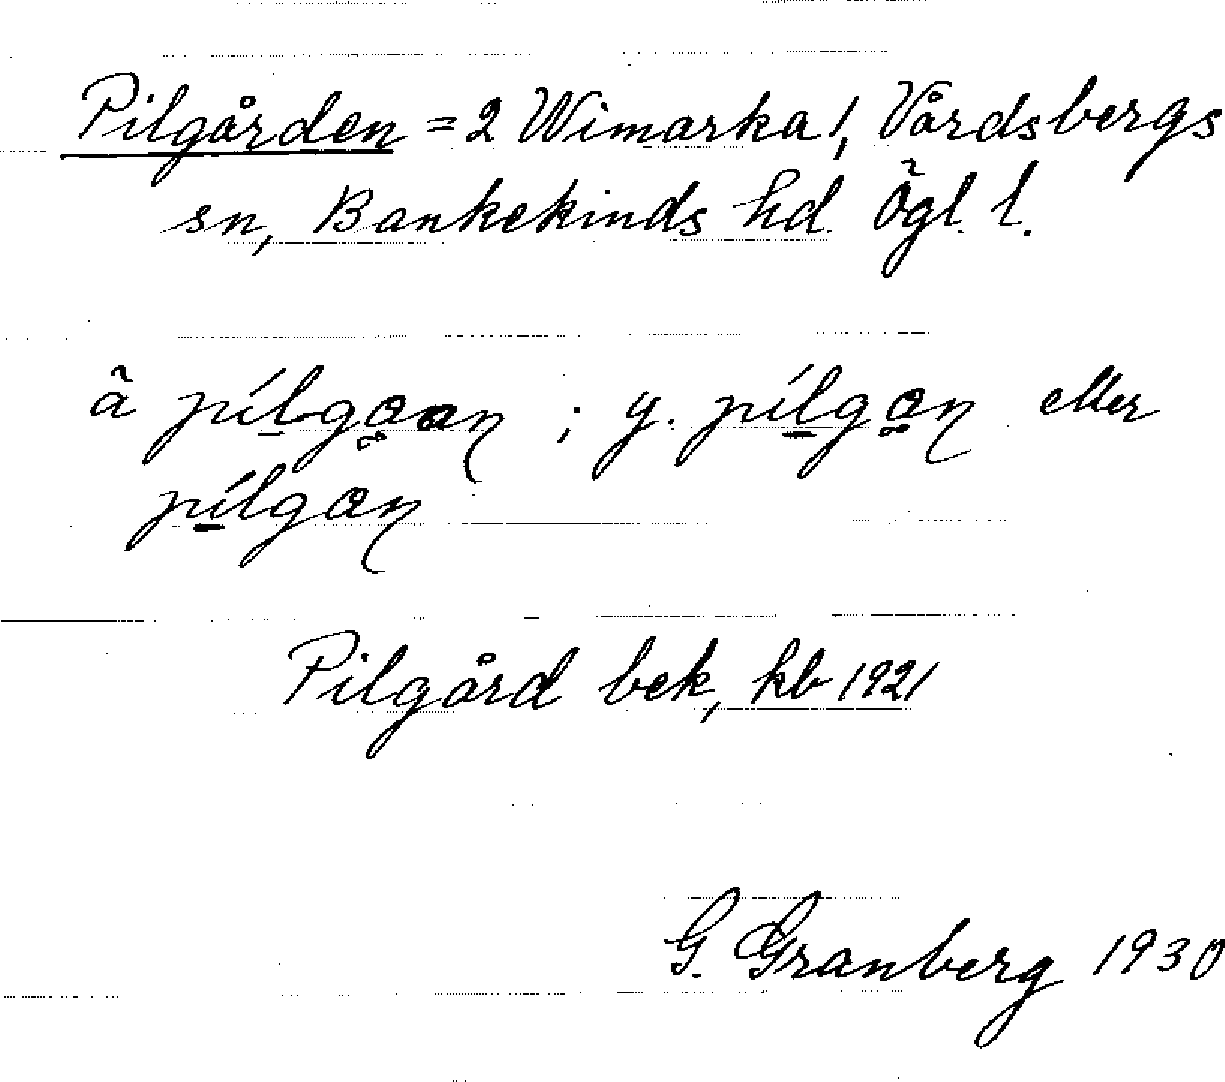 Pilgården = 2 Wimarka 1, Vårdsbergs
sn, Bankekinds hd Ögl. l.
ã pílgɑɑɳ ; y. pílgɑɳ eller
pílgɑɳ
Pilgård bek, kb 1921
G. Granberg 1930